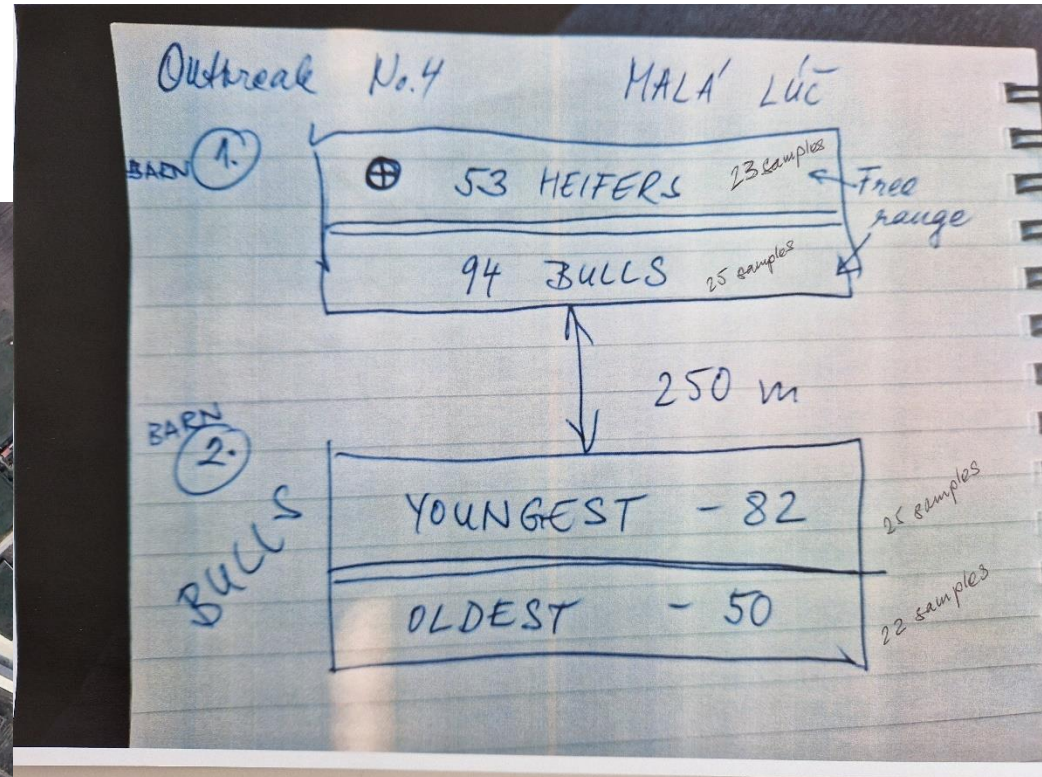 Outbreak No.4 MALÁ LÚČ
BARN 1.
⊕ 53 HEIFERS 23 samples
Free
range
94 BULLS 25 samples
250 m
BARN
2.
BULLS
YOUNGEST - 82 25 samples
OLDEST - 50 22 samples